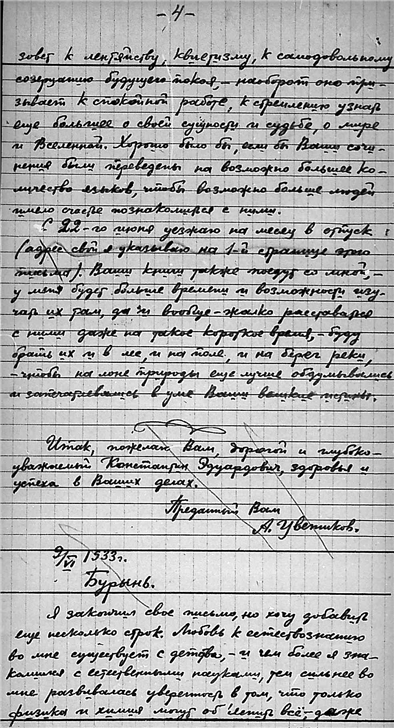 - 4 -
зовет к лентяйству, квиетизму, к самодовольному
созерцанию будущего покоя, – наоборот оно при-
зывает к спокойной работе, к стремлению узнать
еще больше о своей сущности и судьбе, о мире
и Вселенной. Хорошо было бы, если бы Ваши сочи-
нения были переведены на возможно большее ко-
личество языков, чтобы возможно больше людей
имело счастье познакомиться с ними.
С 22-го июня уезжаю на месяц в отпуск
(адрес свой я указываю на 1-й странице этого
письма). Ваши книги также поедут со мной, –
у меня будет больше времени и возможности изу-
чать их там, да и вообще – жалко расставаться
с ними даже на такое короткое время, – буду
брать их и в лес, и на поле, и на берег реки,
– чтобы на лоне природы еще лучше обдумывались
и запечатлевались в уме Ваши великие истины.
Итак, пожелаю Вам, дорогой и глубоко-
уважаемый Константин Эдуардович, здоровья и
успеха в Ваших делах.
Преданный Вам
А. Цветиков.
9/VI 1933г.
Бурынь.
Я закончил свое письмо, но хочу добавить
еще несколько строк. Любовь к естествознанию
во мне существует с детства, – и чем более я зна-
комился с естественными науками, тем сильнее во
мне развивалась уверенность в том, что только
физика и химия могут об'яснить всё, – даже